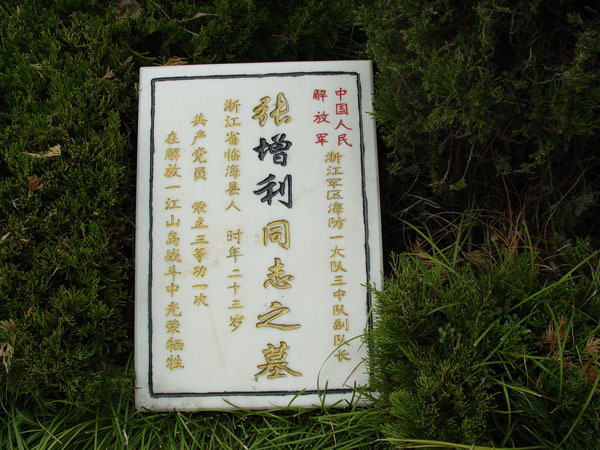 中国人民
解放军
浙江军区海防一大队三中队副队长
张增利同志之墓
浙江省临海县人 时年二十三岁
共产党员 荣立三等功一次
在解放一江山岛战斗中光荣牺牲